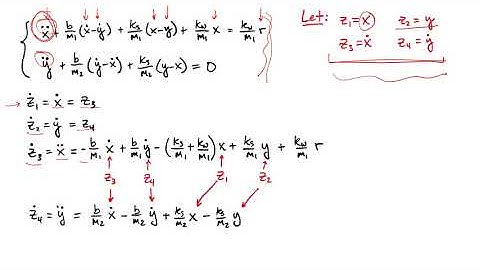 ẍ + b/m₁ (ẋ-ẏ) + ks/m₁ (x-y) + kw/m₁ x = kw/m₁ r
ÿ + b/m₂ (ẏ-ẋ) + ks/m₂ (y-x) = 0
Let: z₁ = x z₂ = y
z₃ = ẋ z₄ = ẏ
→ ż₁ = ẋ = z₃
ż₂ = ẏ = z₄
ż₃ = ẍ = -b/m₁ ẋ + b/m₁ ẏ - (ks/m₁ + kw/m₁) x + ks/m₁ y + kw/m₁ r
z₃ z₄ z₁ z₂
ż₄ = ÿ = b/m₂ ẋ - b/m₂ ẏ + ks/m₂ x - ks/m₂ y